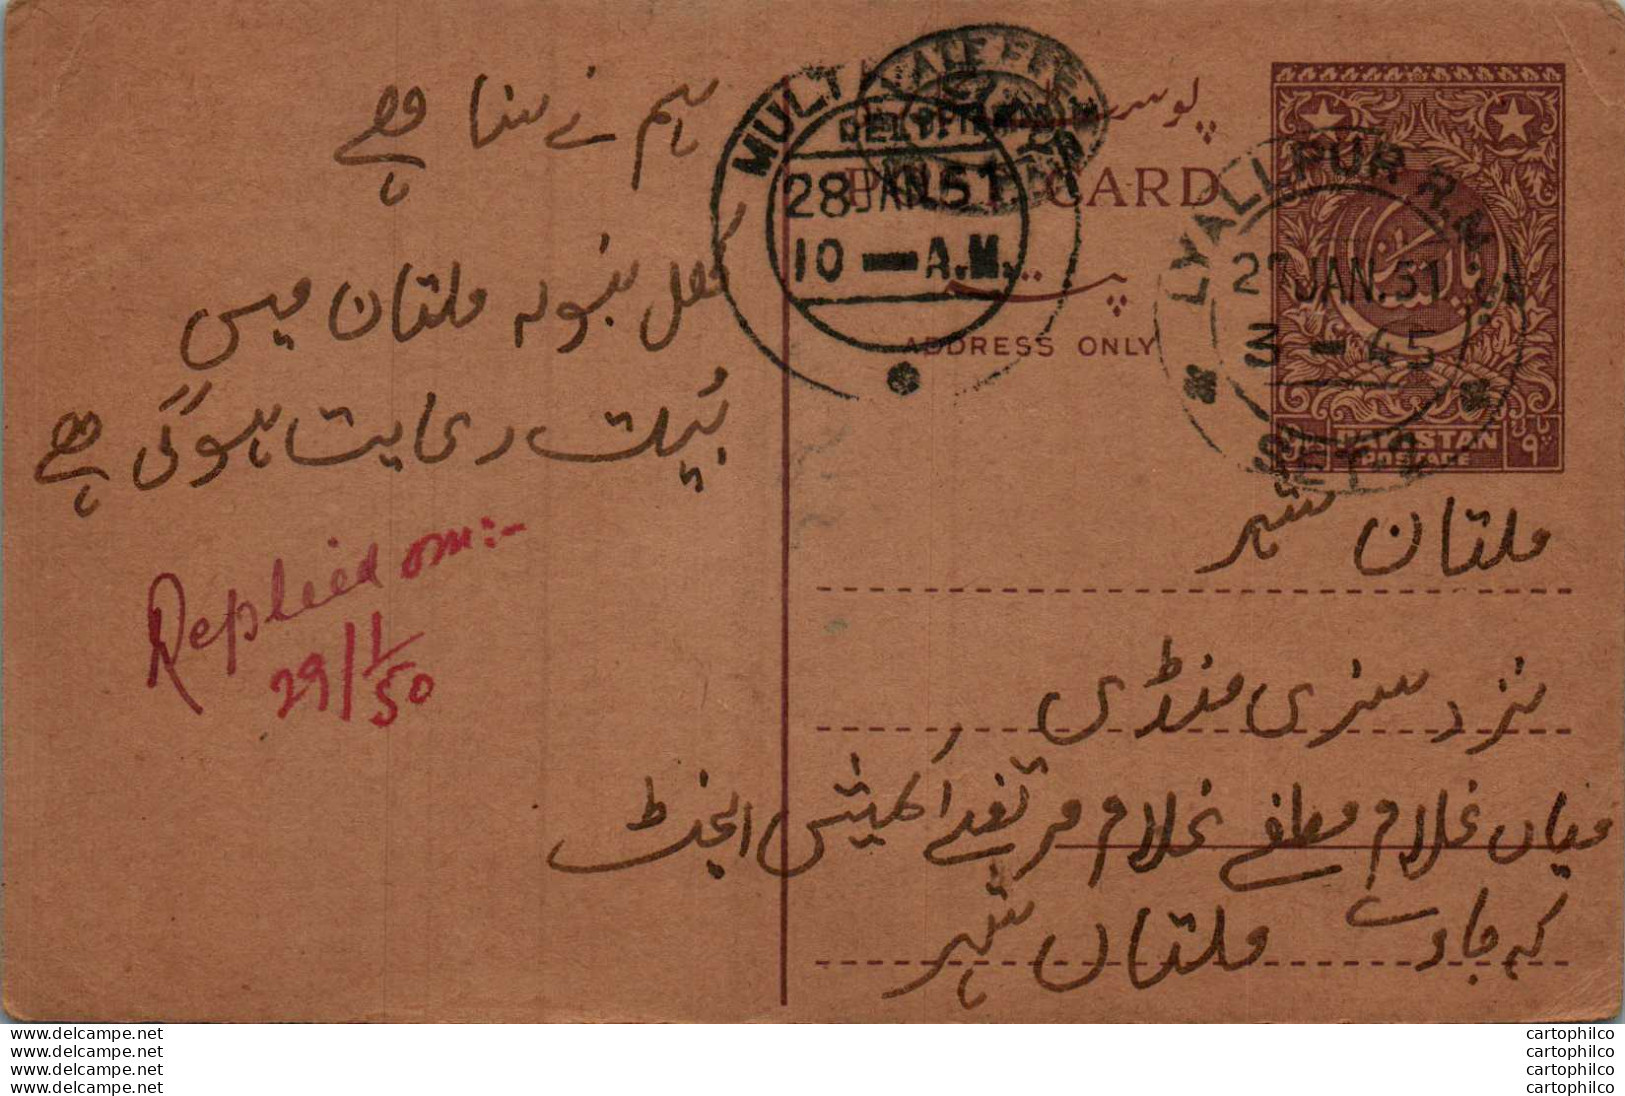 ہم نے سنا ہے
کھل بنولہ ملتان میں
بہت رعایت ہوگئی ہے
Replied on:-
29/1/50
MULTAN
LATE FEE
DELY
28 JAN. 51
10 — A.M.
پوسٹ
POST CARD
پتہ
ADDRESS ONLY
LYALLPUR R.M.S.
2 JAN. 51
3 — 45
SET-2
PAKISTAN
POSTAGE
ملتان شہر
نزد سبزی منڈی
میاں غلام مصطفے غلام مرتضے اکمیشن ایجنٹ
کہ جاوے ملتان شہر
www.delcampe.net
www.delcampe.net
www.delcampe.net
www.delcampe.net
cartophilco
cartophilco
cartophilco
cartophilco